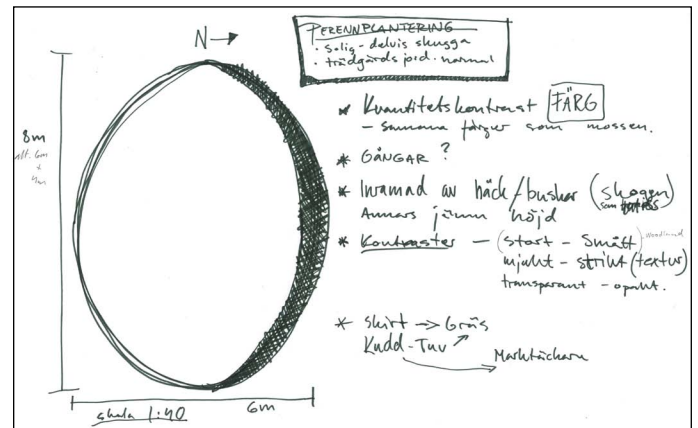 N→
PERENNPLANTERING
· Solig - delvis skugga
· trädgårdsjord. normal
* Kvantitetskontrast FÄRG
- Samma färger som mossen.
* GÅNGAR ?
* Inramad av häck/buskar (skogen)
som
Annars jämn höjd
* Kontraster - (Stort - Smått)
mjukt - strikt (textur)
transparant - opakt.
* Skirt → Gräs
Kudd - Tuv ↗
→ Marktäckare
8m
alt. 6m
+
4m
6m
skala 1:40